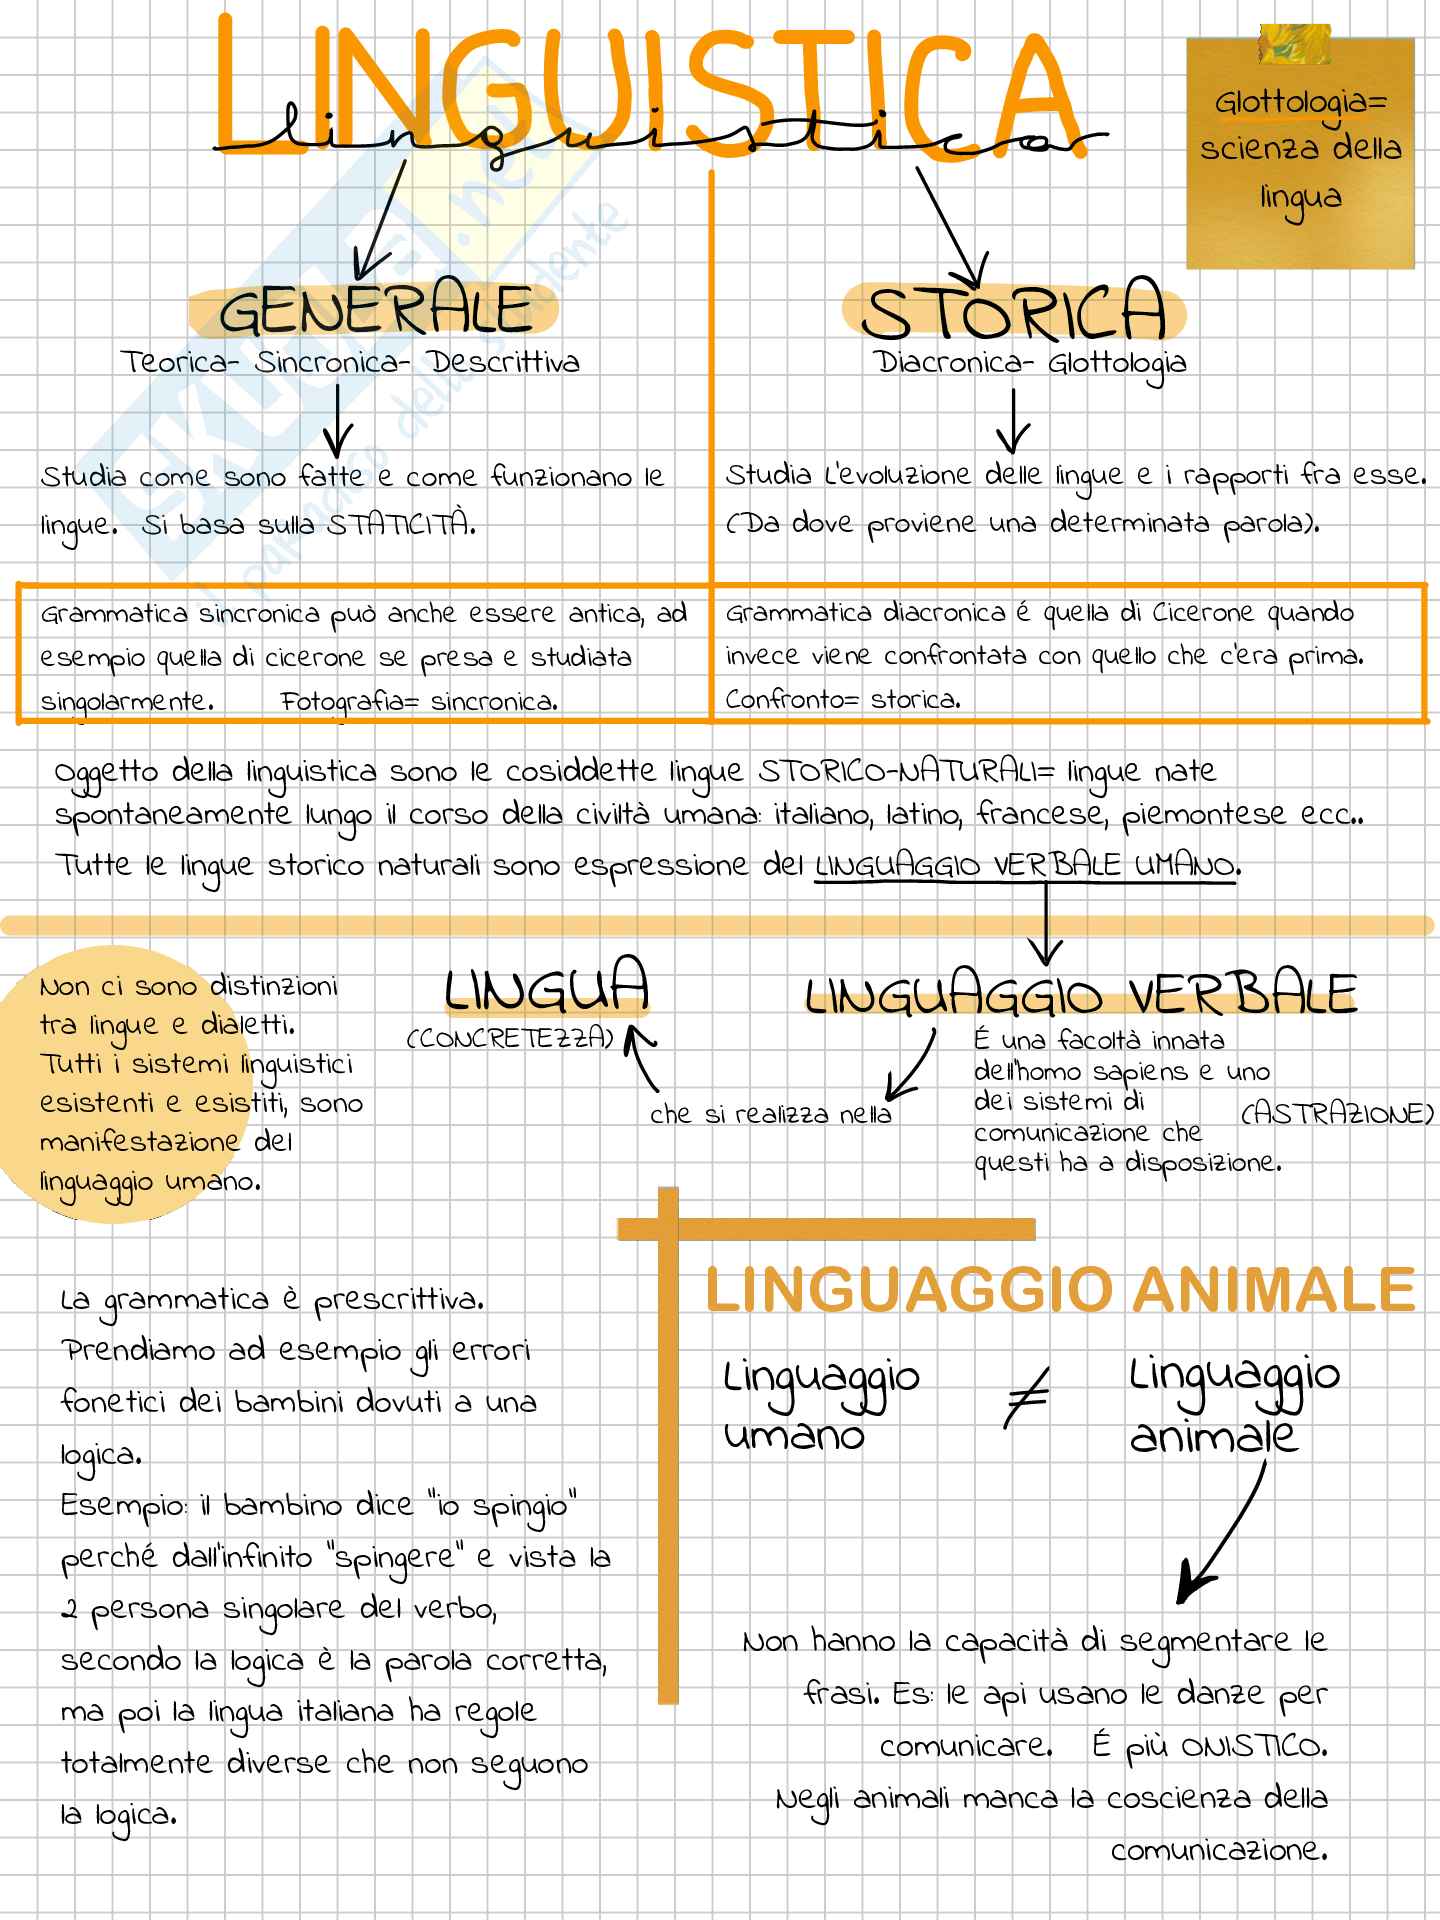 LINGUISTICA
linguistica
Glottologia=
scienza della
lingua
GENERALE
Teorica- Sincronica- Descrittiva
Studia come sono fatte e come funzionano le
lingue. Si basa sulla STATICITÀ.
STORICA
Diacronica- Glottologia
Studia L'evoluzione delle lingue e i rapporti fra esse.
(Da dove proviene una determinata parola).
SKUOLA.net
il paradiso dello studente
Grammatica sincronica può anche essere antica, ad
esempio quella di cicerone se presa e studiata
singolarmente. Fotografia= sincronica.
Grammatica diacronica é quella di Cicerone quando
invece viene confrontata con quello che c'era prima.
Confronto= storica.
Oggetto della linguistica sono le cosiddette lingue STORICO-NATURALI= lingue nate
spontaneamente lungo il corso della civiltà umana: italiano, latino, francese, piemontese ecc..
Tutte le lingue storico naturali sono espressione del LINGUAGGIO VERBALE UMANO.
Non ci sono distinzioni
tra lingue e dialetti.
Tutti i sistemi linguistici
esistenti e esistiti, sono
manifestazione del
linguaggio umano.
LINGUA
(CONCRETEZZA)
che si realizza nella
LINGUAGGIO VERBALE
É una facoltà innata
dell'homo sapiens e uno
dei sistemi di
comunicazione che
questi ha a disposizione.
(ASTRAZIONE)
La grammatica è prescrittiva.
Prendiamo ad esempio gli errori
fonetici dei bambini dovuti a una
logica.
Esempio: il bambino dice "io spingio"
perché dall'infinito "spingere" e vista la
2 persona singolare del verbo,
secondo la logica è la parola corretta,
ma poi la lingua italiana ha regole
totalmente diverse che non seguono
la logica.
LINGUAGGIO ANIMALE
Linguaggio
umano
≠
Linguaggio
animale
Non hanno la capacità di segmentare le
frasi. Es: le api usano le danze per
comunicare. É più ONISTICO.
Negli animali manca la coscienza della
comunicazione.